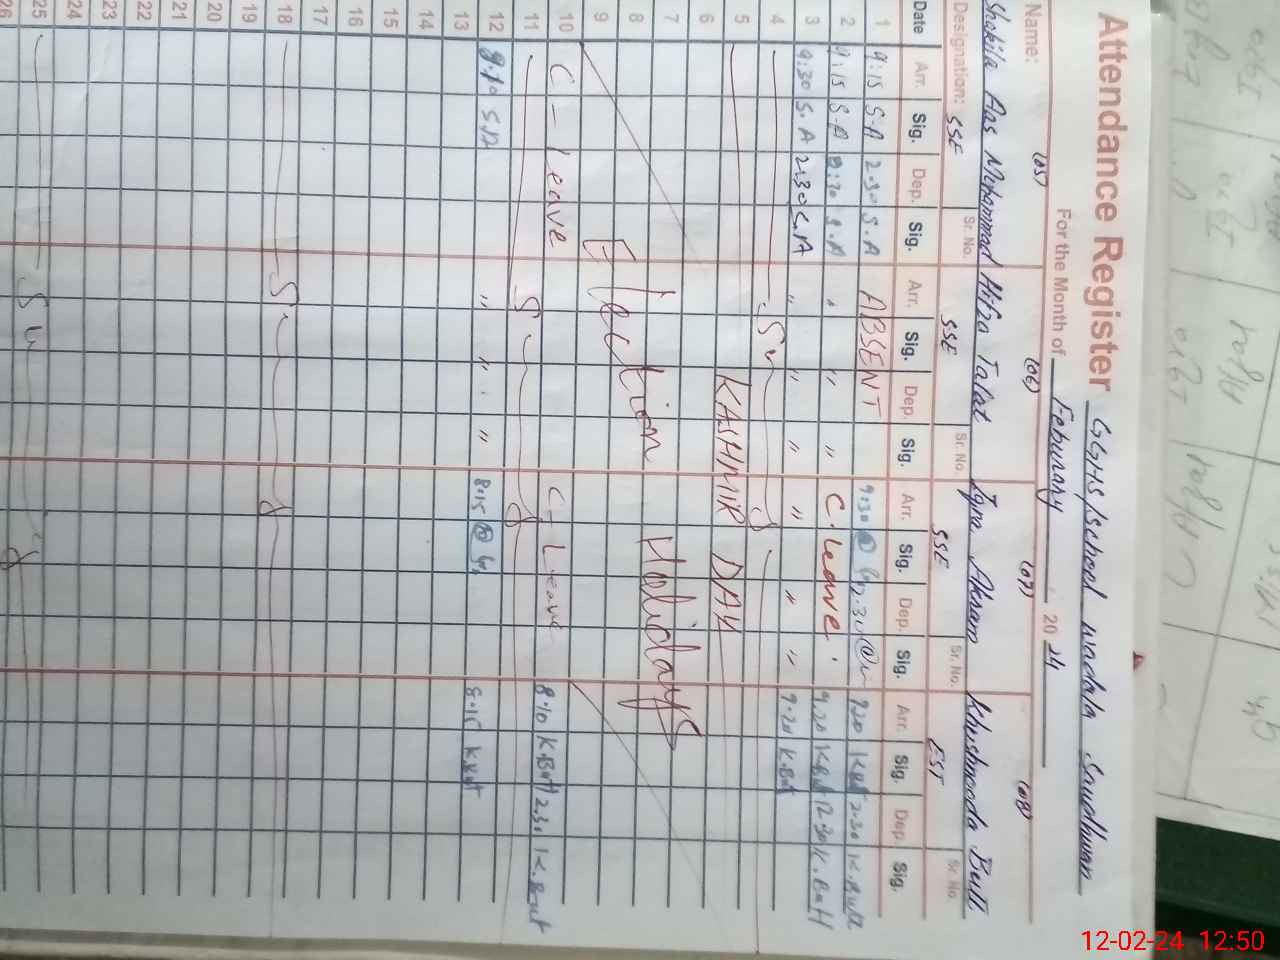 Attendance Register GGHS/school wadala Sandhuan
For the Month of Feburary 2024
(05) (06) (07) (08)
Name: Shakila Aas Mohammad Hifza Talat Iqra Akram Khushnooda Butt
Designation: SSE Sr. No. SSE Sr. No. SSE Sr. No. EST Sr. No.
Date Arr. Sig. Dep. Sig. Arr. Sig. Dep. Sig. Arr. Sig. Dep. Sig. Arr. Sig. Dep. Sig.
1 9:15 S.A 2.30 S.A ABSENT 9:30 2.30 920 K.Butt 2.30 K.Butt
2 9:15 S.A 2:30 S.A " " " C.Leave 9.20 K.Butt 12 30 K.Butt
3 9:30 S.A 2:30 S.A " " " " " " 9.20 K.But
4 S u
5 KASHMIR DAY
6
7 Election Holidays
8
9
10 C - Leave C - Leave 8.10 K.Butt 2.30 K.Butt
11 S
12 8.10 S.A " " " 8.15 8.15 K.Butt
13
14
15
16
17
18 S
19
20
21
22
23
24
25 Su
26
12-02-24 12:50